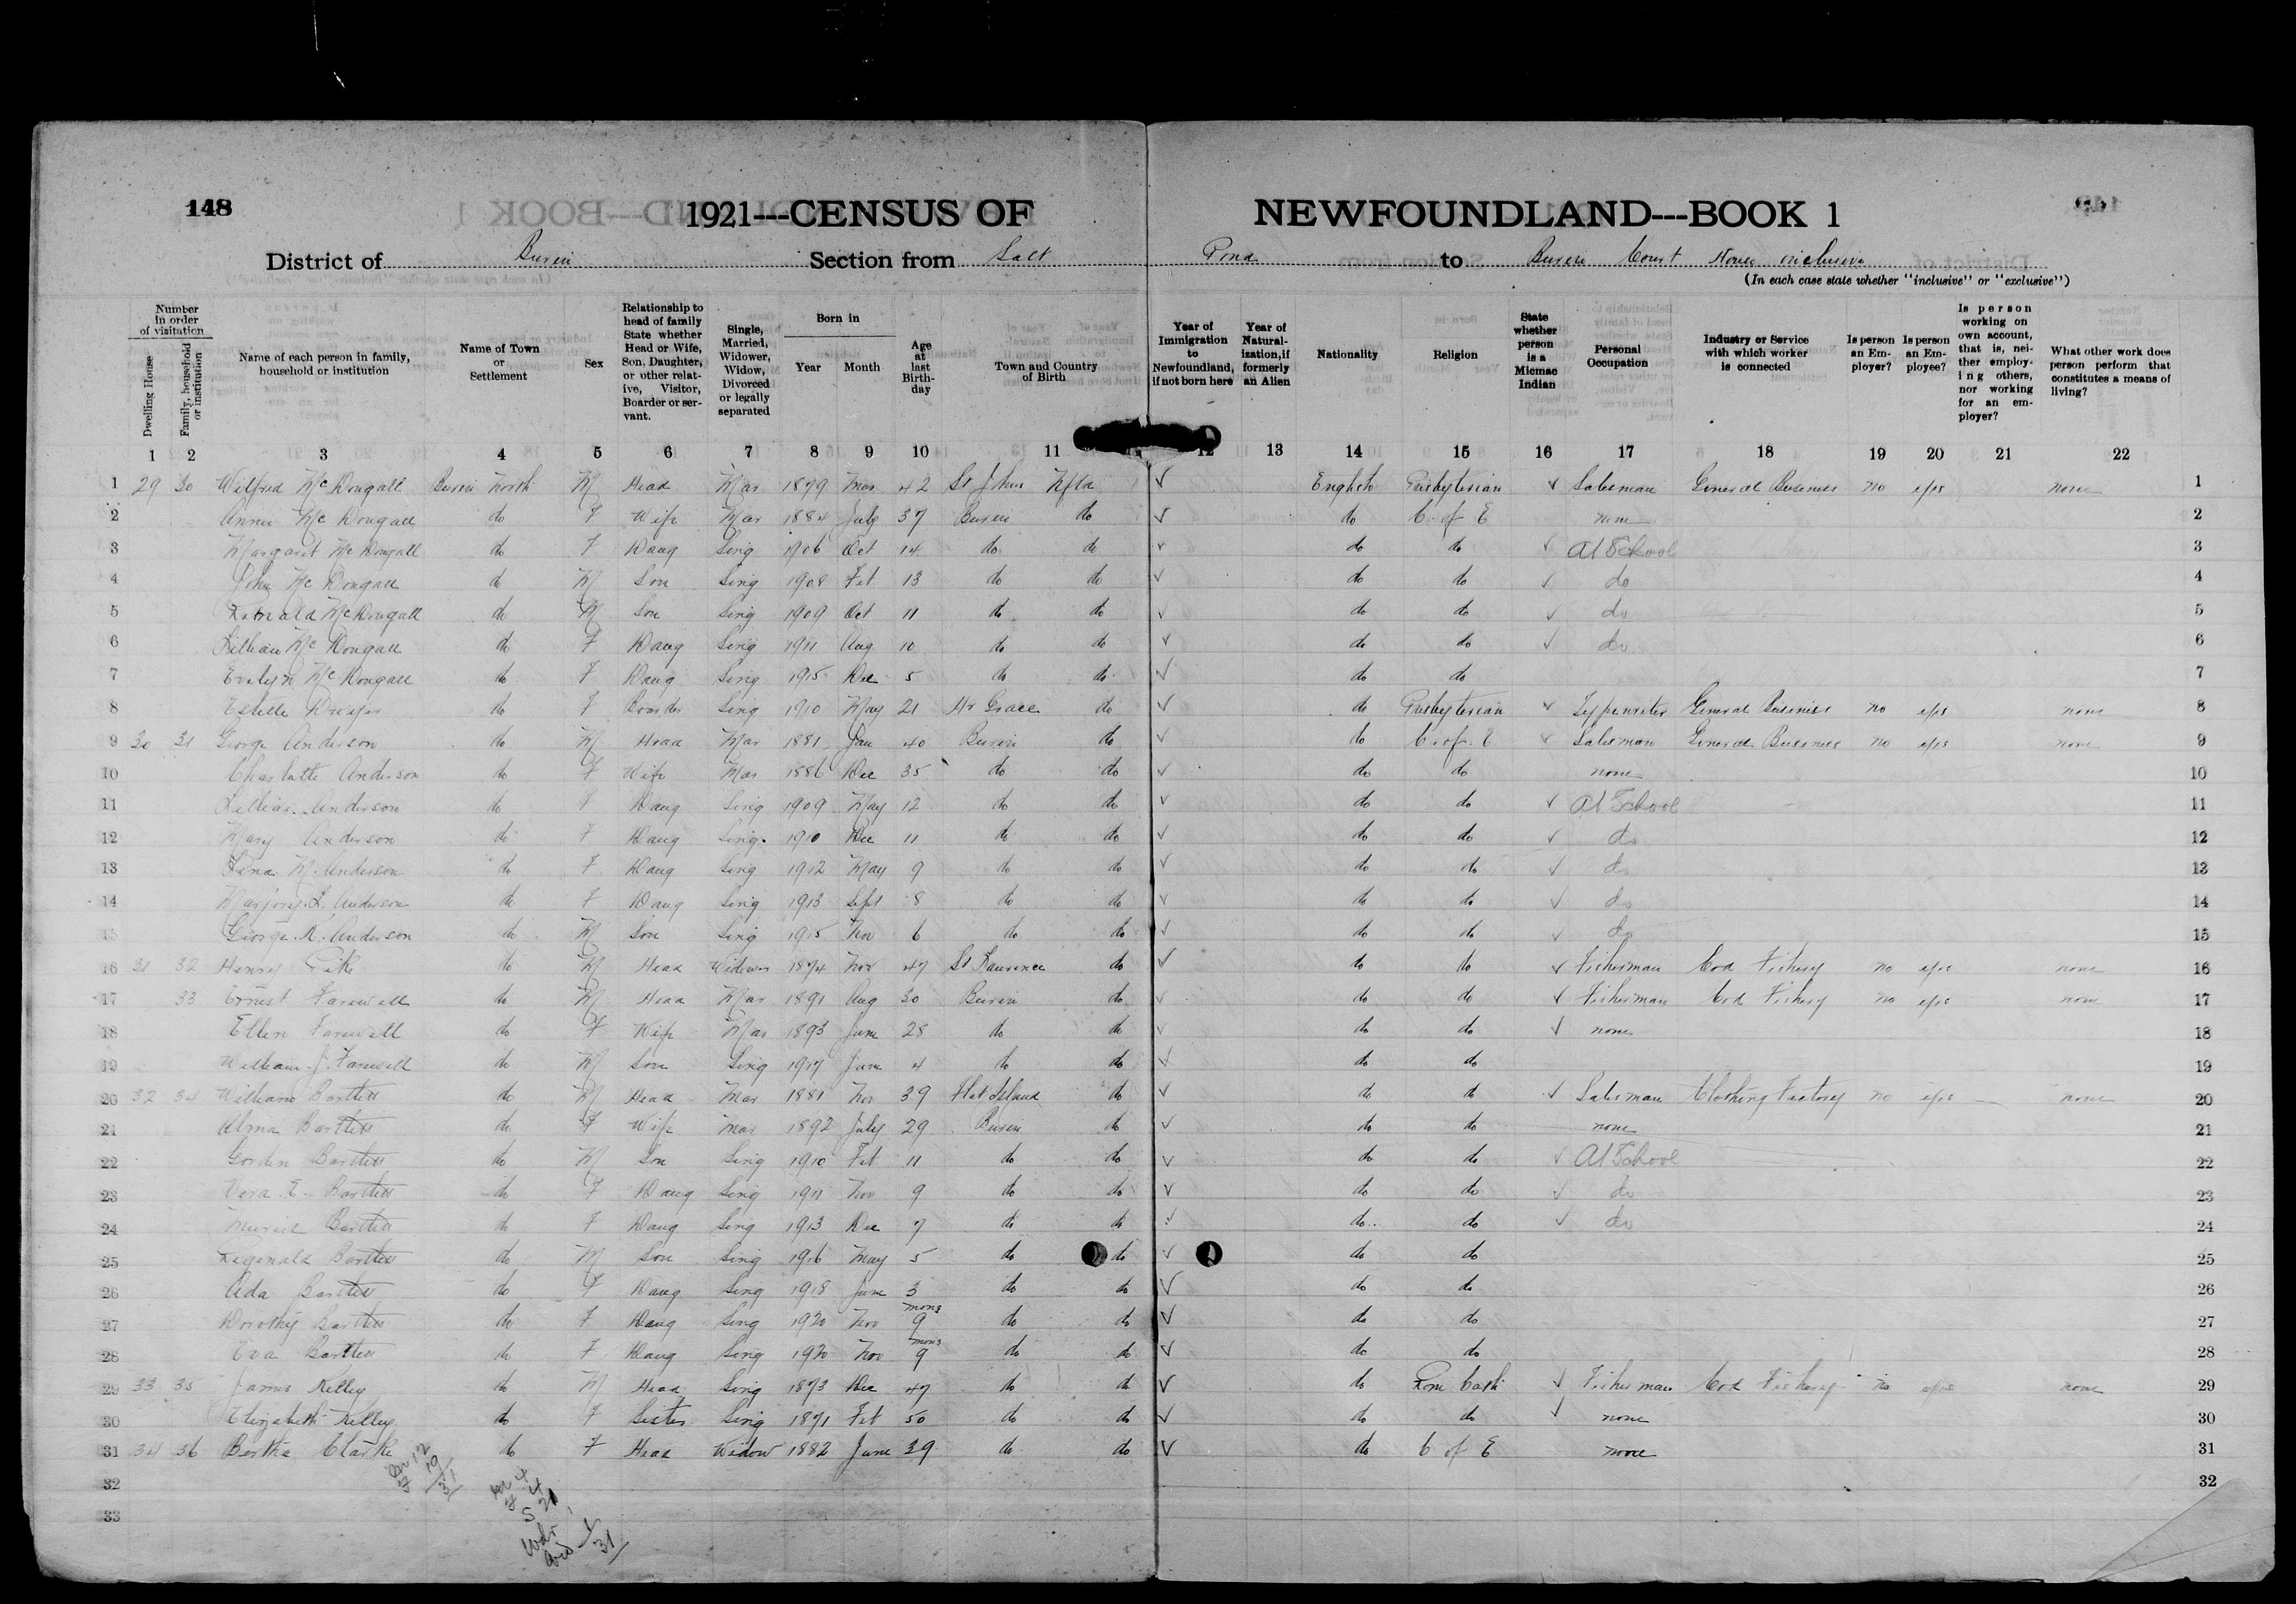 148
1921---CENSUS OF NEWFOUNDLAND---BOOK 1
District of Burin Section from Salt Pond to Burin Court House inclusive
(In each case state whether "inclusive" or "exclusive")
Number in order of visitation
Dwelling House
Family, household or institution
Name of each person in family, household or institution
Name of Town or Settlement
Sex
Relationship to head of family State whether Head or Wife, Son, Daughter, or other relative, Visitor, Boarder or servant.
Single, Married, Widower, Widow, Divorced or legally separated
Born in
Year
Month
Age at last Birthday
Town and Country of Birth
Year of Immigration to Newfoundland, if not born here
Year of Naturalization, if formerly an Alien
Nationality
Religion
State whether person is a Micmac Indian
Personal Occupation
Industry or Service with which worker is connected
Is person an Employer?
Is person an Employee?
Is person working on own account, that is, neither employing others, nor working for an employer?
What other work does person perform that constitutes a means of living?
1 2 3 4 5 6 7 8 9 10 11 12 13 14 15 16 17 18 19 20 21 22
1 29 30 Wilfred McDougall Burin North M Head Mar 1879 Mar 42 St Johns Nfld √ English Presbyterian √ Salesman General Business no yes none 1
2 Annie McDougall do F Wife Mar 1884 July 37 Burin do √ do C. of E none 2
3 Margaret McDougall do F Daug Sing 1906 Oct 14 do do √ do do √ At School 3
4 John McDougall do M Son Sing 1908 Feb 13 do do √ do do √ do 4
5 Ronald McDougall do M Son Sing 1909 Oct 11 do do √ do do √ do 5
6 Lillian McDougall do F Daug Sing 1911 Aug 10 do do √ do do √ do 6
7 Evelyn McDougall do F Daug Sing 1915 Dec 5 do do √ do do 7
8 Estelle do F Boarder Sing 1910 May 21 Hr Grace do √ do Presbyterian √ Typewriter General Business no yes none 8
9 30 31 George Anderson do M Head Mar 1881 Jan 40 Burin do √ do C. of E √ Salesman General Business no yes none 9
10 Charlotte Anderson do F Wife Mar 1886 Dec 35 do do √ do do none 10
11 Lillian Anderson do F Daug Sing 1909 May 12 do do √ do do √ At School 11
12 Mary Anderson do F Daug Sing. 1910 Dec 11 do do √ do do √ do 12
13 Lena M. Anderson do F Daug Sing 1912 May 9 do do √ do do √ do 13
14 Marjory L. Anderson do F Daug Sing 1913 Sept 8 do do √ do do √ do 14
15 George R. Anderson do M Son Sing 1915 Nov 6 do do √ do do √ do 15
16 31 32 Henry Pike do M Head Widower 1874 Nov 47 St Lawrence do √ do do √ Fisherman Cod Fishery no yes none 16
17 33 Ernest Farewell do M Head Mar 1891 Aug 30 Burin do √ do do √ Fisherman Cod Fishery no yes none 17
18 Ellen Farewell do F Wife Mar 1893 June 28 do do √ do do √ none 18
19 William J. Farewell do M Son Sing 1917 June 4 do do √ do do 19
20 32 34 William Bartlett do M Head Mar 1881 Nov 39 Flat Island do √ do do √ Salesman Clothing Factory no yes none 20
21 Alma Bartlett do F Wife Mar 1892 July 29 Burin do √ do do none 21
22 Gordon Bartlett do M Son Sing 1910 Feb 11 do do √ do do √ At School 22
23 Vera E. Bartlett do F Daug Sing 1911 Nov 9 do do √ do do √ do 23
24 Muriel Bartlett do F Daug Sing 1913 Dec 7 do do √ do do √ do 24
25 Reginald Bartlett do M Son Sing 1916 May 5 do do √ do do 25
26 Ada Bartlett do F Daug Sing 1918 June 3 do do √ do do 26
27 Dorothy Bartlett do F Daug Sing 1920 Nov 9 mons do do √ do do 27
28 Eva Bartlett do F Daug Sing 1920 Nov 9 mons do do √ do do 28
29 33 35 James Kelley do M Head Sing 1873 Dec 47 do do √ do Rom Cath √ Fisherman Cod Fishery no yes none 29
30 Elizabeth Kelley do F Sister Sing 1871 Feb 50 do do √ do do √ none 30
31 34 36 Bertha Clarke do F Head Widow 1882 June 39 do do √ do C of E none 31
32 32
33
12
19
31
4
4
21
31